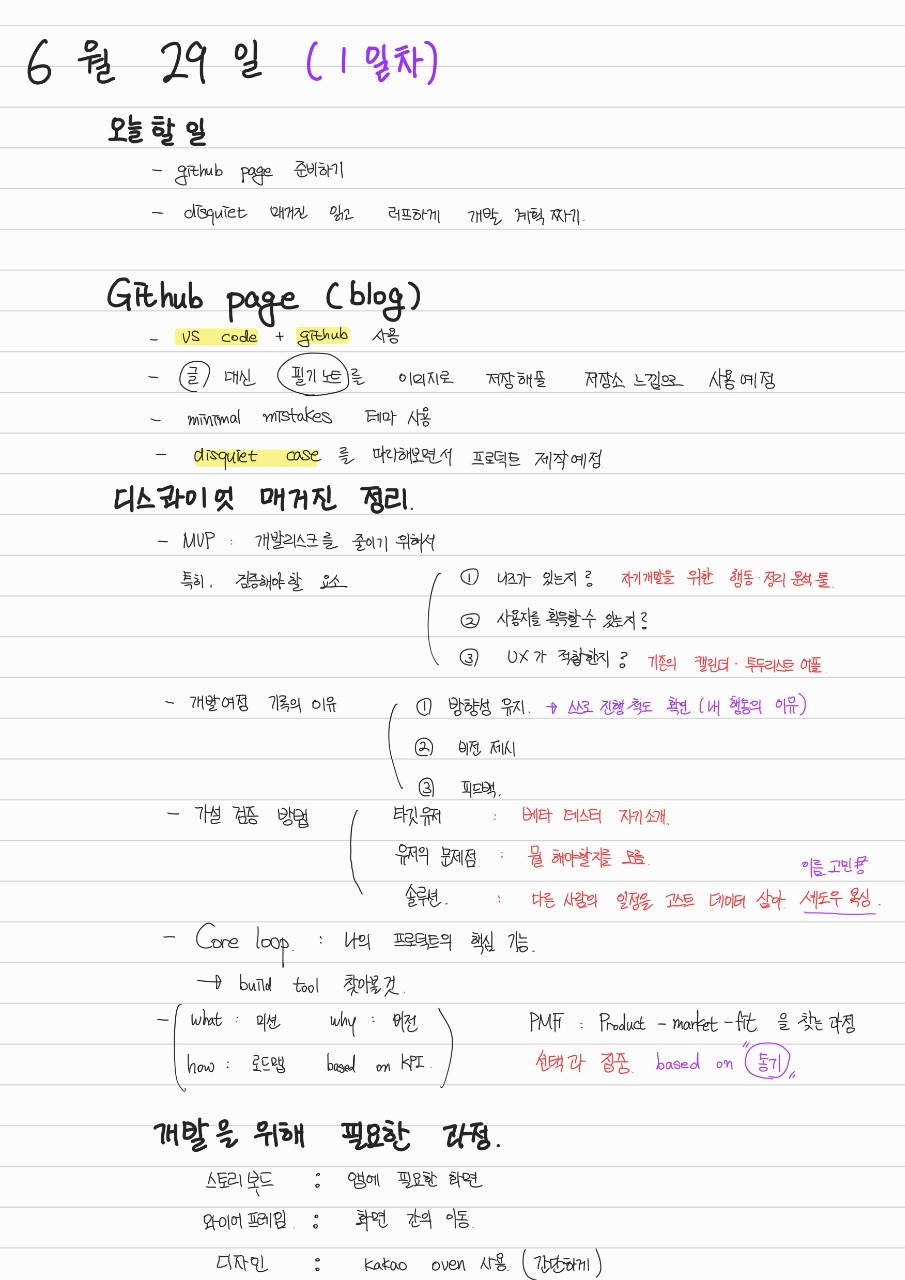 6월 29일 (1일차)
오늘 할 일
- github page 준비하기
- disquiet 매거진 읽고 러프하게 개발 계획 짜기.
Github page (blog)
- VS code + github 사용
- 글 대신 필기노트를 이미지로 저장해둘 저장소 느낌으로 사용예정
- minimal mistakes 테마 사용
- disquiet case 를 따라해보면서 프로덕트 제작예정
디스콰이엇 매거진 정리.
- MVP : 개발리스크를 줄이기 위해서
특히, 검증해야 할 요소
① 니즈가 있는지? 자기개발을 위한 행동·정리 분석 툴.
② 사용자를 획득할 수 있는지?
③ UX가 적합한지? 기존의 캘린더·투두리스트 어플
- 개발여정 기록의 이유
① 방향성 유지. → 스스로 진행척도 확인 (내 행동의 이유)
② 비전 제시
③ 피드백.
- 가설 검증 방법
타깃유저 : 베타 테스터 자기소개.
유저의 문제점 : 뭘 해야할지를 모름.
이름 고민중
솔루션. : 다른 사람의 일정을 고스트 데이터 삼아 섀도우 복싱.
- Core loop. : 나의 프로덕트의 핵심 기능.
→ build tool 찾아볼것.
- what : 미션 why : 비전
how : 로드맵 based on KPI.
PMF : Product-market-fit 을 찾는 과정
선택과 집중. based on "동기"
개발을 위해 필요한 과정.
스토리보드 : 앱에 필요한 화면
와이어프레임. : 화면 간의 이동.
디자인 : kakao oven 사용. (간단하게)